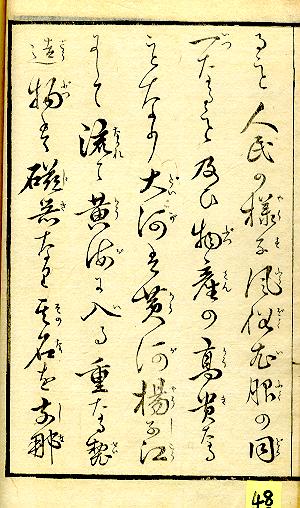 ること人民の様子風俗衣服の同
一なること及ひ物産の高貴なる
ことなり大河は黄河揚子江
にて流て黄海に入る重なる製
造物は磁器なり其石を支那
48